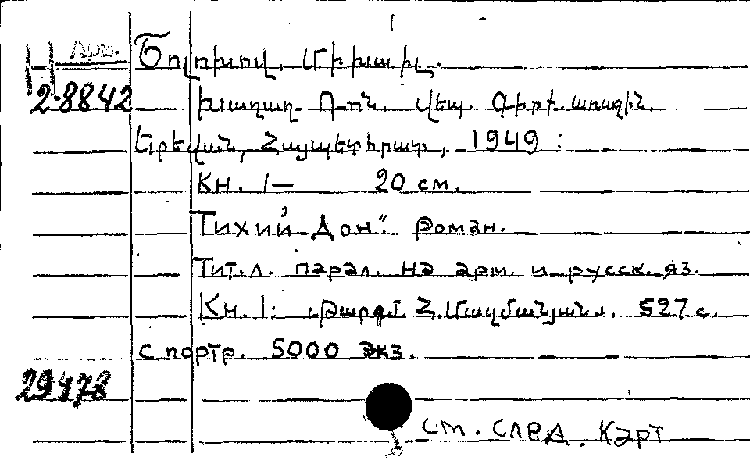 Շոլոխով, Միխաիլ.
2-8842 Խաղաղ Դոն. Վեպ. Գիրք առաջին.
Երևան, Հայպետհրատ, 1949:
Кн. 1— 20 см.
Тихий Дон" Роман.
Тит.л. парал. на арм. и русск. яз.
Кн. 1: Թարգմ Հ. Մազմանյան. 527 с.
с портр. 5000 экз.
29478
См. след. карт